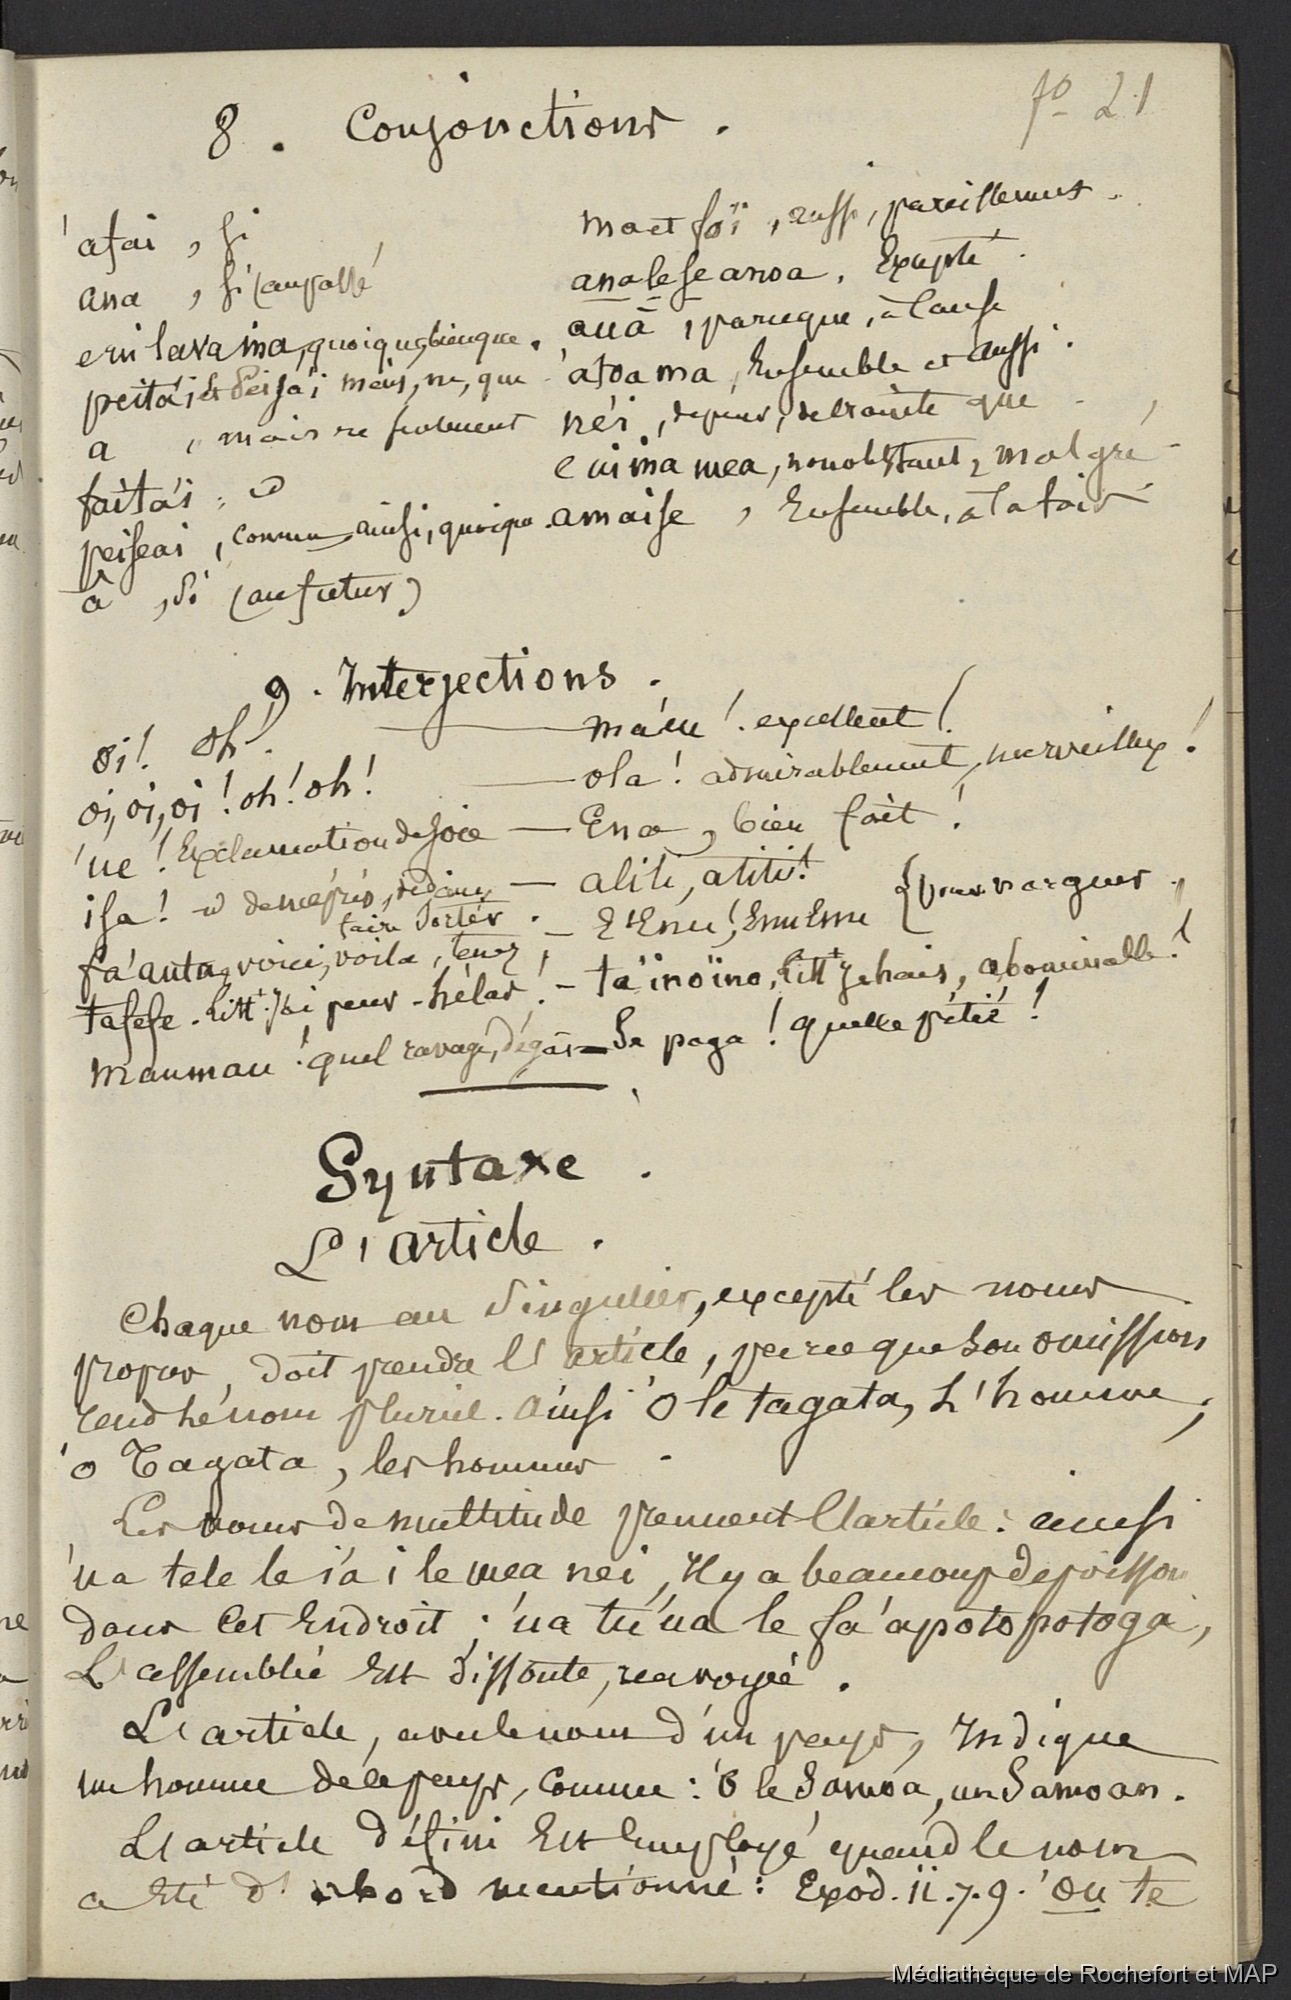 fo 21
8. Conjonctions.
'afai, si
ana, si (au passé
e ui lava ina, quoique, bienque.
peita'i et Peisa'i mais, ne, que
a, mais re seulement
faita'i: id
peiseai, comme ainsi, quoique
â, si (au futur)
ma et foï, aussi, pareillement.
ana le se anoa, Excepté.
auā, parceque, à cause
'atoa ma, Ensemble et aussi.
néi, depeur, de crainte que
e ui ina mea, nonobstant, malgré
amaise, Ensemble, à la fois
9. Interjections.
oi! oh! — ma'eu! excellent!
oi, oi, oi! oh! oh! — ola! admirablement, merveilleux!
'ue! Exclamation de joie — Ena, bien fait!
isa! id de mépris, dédain, — aliti, atiti!
faire sortir
fa'auta, voici, voila, tenez, — E'Enu! Enu Enu {pour narguer,
tafefe. Litt.t j'ai peur - hélas! — ta'inoïno, litt.t je hais, abominable!
maumau! quel ravage, dégât — Se paga! quelle pitié!
Syntaxe.
L'article.
Chaque nom au Singulier, excepté les noms
propres, doit prendre l'article, parce que son omission
rend le nom pluriel. Ainsi 'O le tagata, L'homme,
'o Tagata, les hommes.
Les noms de multitude prennent l'article: ainsi
'ua tele le i'a i le mea nei, Il y a beaucoup de poisson
dans cet Endroit; 'ua tu'ua le fa'apotopotoga,
L'assemblée Est dissoute, renvoyée.
L'article, avec le nom d'un pays, Indique
un homme de ce pays, comme: 'O le Samoa, un Samoan.
L'article défini Est Employé quand le nom
a été d'abord mentionné: Exod. II. 7. 9. 'ou te
Médiathèque de Rochefort et MAP